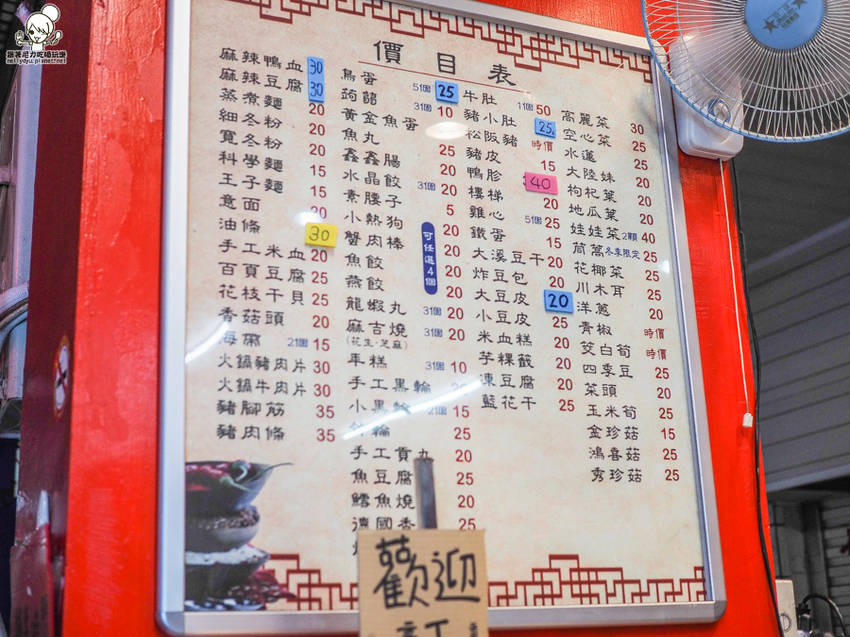 跟著尼力吃喝玩樂
nellydyu.pixnet.net
價目表
麻辣鴨血 30
麻辣豆腐 30
蒸煮麵 20
細冬粉 20
寬冬粉 20
科學麵 15
王子麵 15
意面 20
油條 30
手工米血 20
百頁豆腐 25
花枝干貝 25
香菇頭 20
海帶 2個 15
火鍋豬肉片 30
火鍋牛肉片 30
豬腳筋 35
豬肉條 35
鳥蛋 5個 25
蒟蒻 3個 10
黃金魚蛋
魚丸 25
鑫鑫腸 20
水晶餃 3個 20
素腰子 5
小熱狗 20
蟹肉棒 20
魚餃 20
燕餃 20
可任選4個
龍蝦丸 3個 20
麻吉燒 3個 20
(花生·芝麻)
年糕 3個 10
手工黑輪 20
小黑輪 2個 15
輪 25
手工貢丸 20
魚豆腐 25
鱈魚燒 20
德國香 25
牛肚 1個 50
豬小肚 25
松阪豬 時價
豬皮 15
鴨胗 40
樓梯 20
雞心 5個 25
鐵蛋 15
大溪豆干 20
炸豆包 20
大豆皮 20
小豆皮 25
米血糕 20
芋粿簽 20
凍豆腐 20
藍花干 25
高麗菜 30
空心菜 25
水蓮 25
大陸妹 20
枸杞菜 20
地瓜菜 20
娃娃菜 2顆 40
茼萵 冬季限定 25
花椰菜 25
川木耳 25
洋蔥 20
青椒 時價
茭白筍 時價
四季豆 25
菜頭 20
玉米筍 20
金珍菇 15
鴻喜菇 25
秀珍菇 25
歡迎
訂